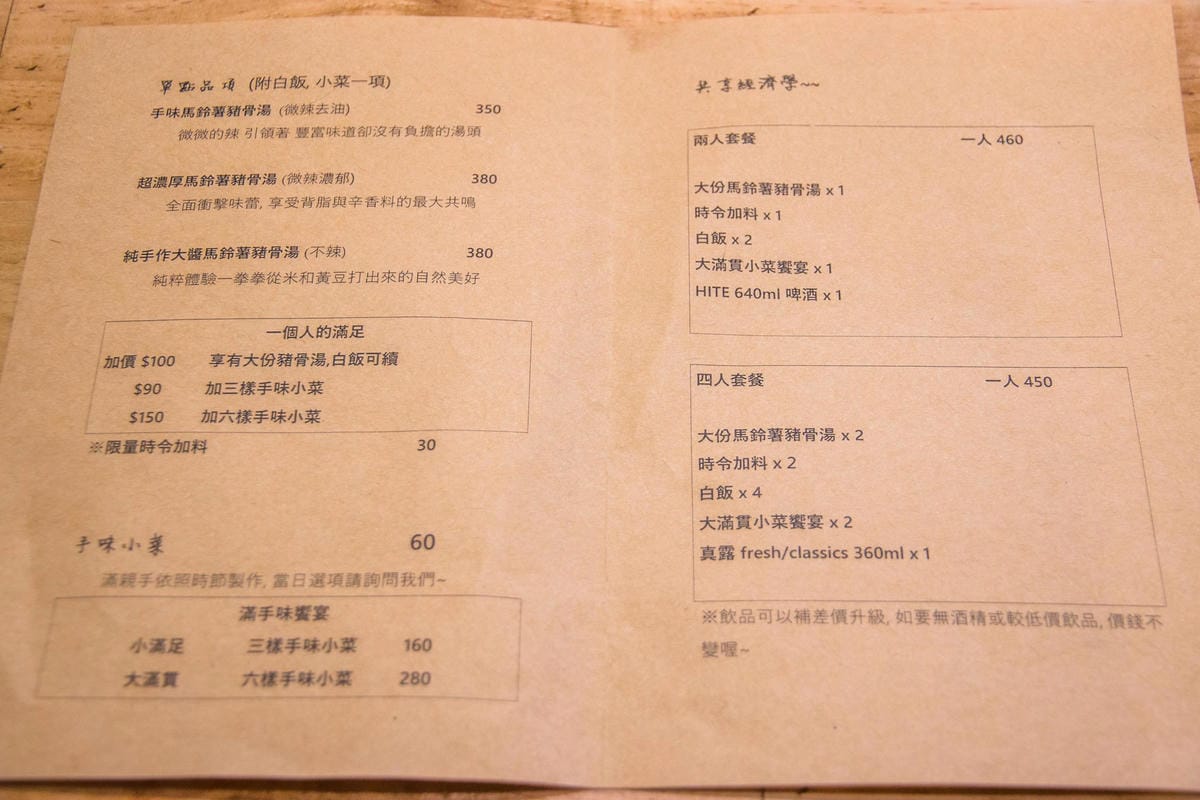 單點品項 (附白飯, 小菜一項)
手味馬鈴薯豬骨湯 (微辣去油) 350
微微的辣 引領著 豐富味道卻沒有負擔的湯頭
超濃厚馬鈴薯豬骨湯 (微辣濃郁) 380
全面衝擊味蕾, 享受背脂與辛香料的最大共鳴
純手作大醬馬鈴薯豬骨湯 (不辣) 380
純粹體驗一拳拳從米和黃豆打出來的自然美好
一個人的滿足
加價 $100 享有大份豬骨湯,白飯可續
$90 加三樣手味小菜
$150 加六樣手味小菜
※限量時令加料 30
手味小菜 60
滿親手依照時節製作, 當日選項請詢問我們~
滿手味饗宴
小滿足 三樣手味小菜 160
大滿貫 六樣手味小菜 280
共享經濟學~~
兩人套餐 一人 460
大份馬鈴薯豬骨湯 x 1
時令加料 x 1
白飯 x 2
大滿貫小菜饗宴 x 1
HITE 640ml 啤酒 x 1
四人套餐 一人 450
大份馬鈴薯豬骨湯 x 2
時令加料 x 2
白飯 x 4
大滿貫小菜饗宴 x 2
真露 fresh/classics 360ml x 1
※飲品可以補差價升級, 如要無酒精或較低價飲品, 價錢不
變喔~